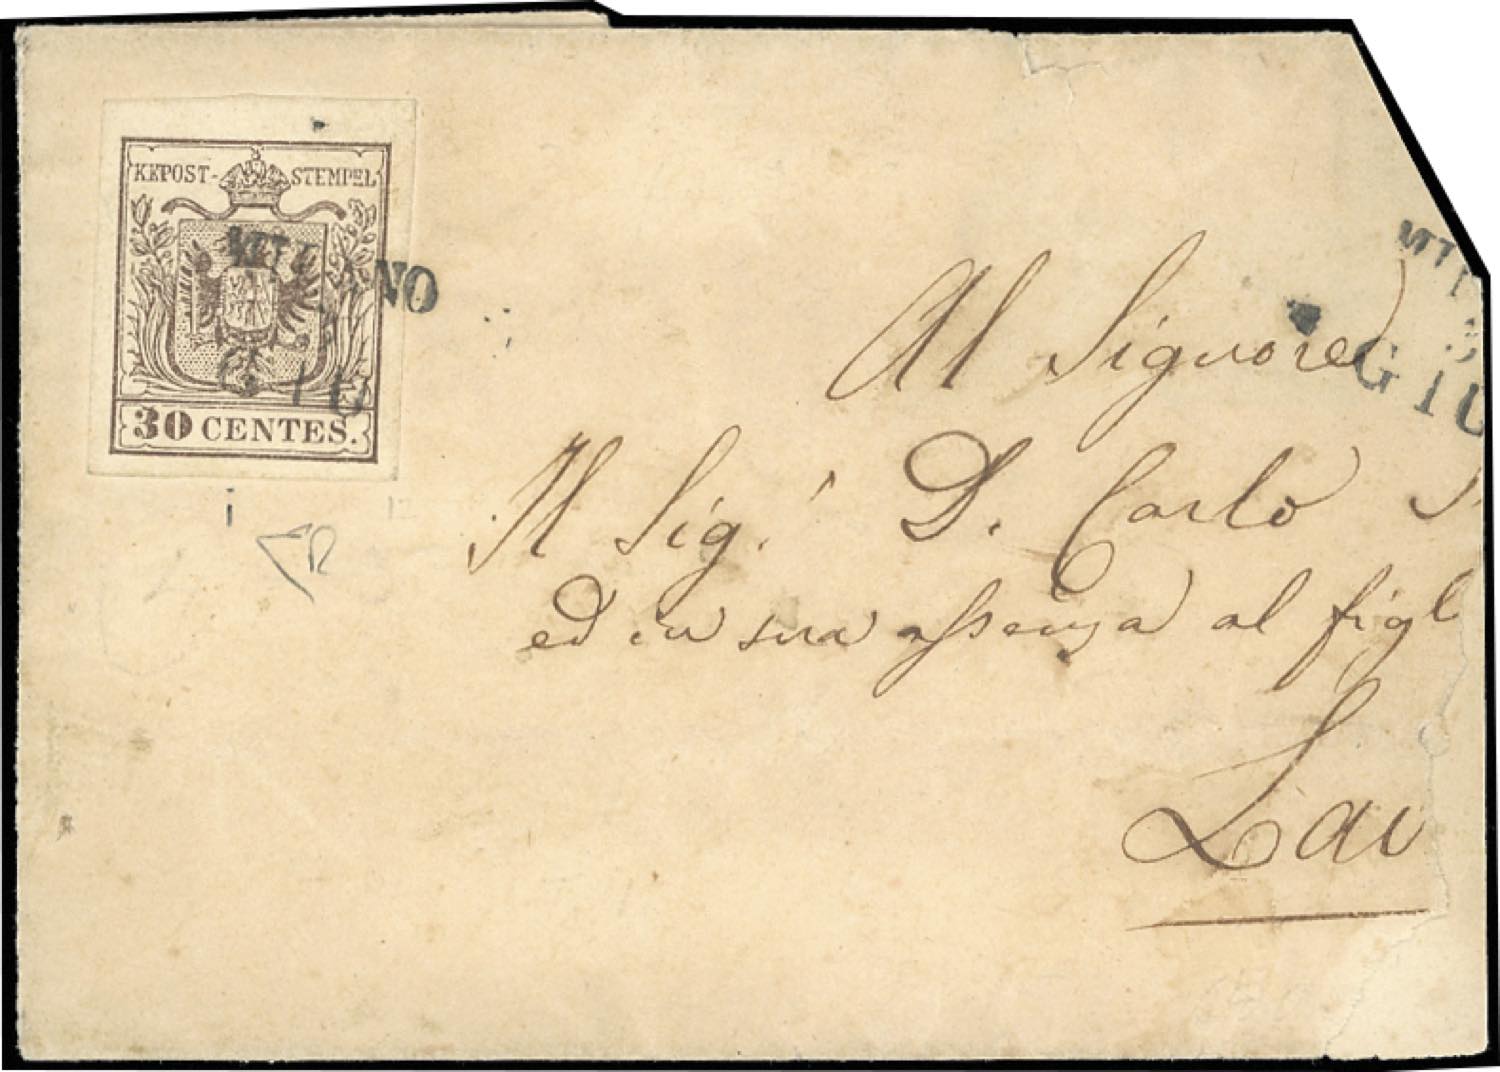 KKPOST-STEMPEL
MILANO
GIU
30 CENTES.
MIL
GIU
Al Signore
Il Sig.r D. Carlo
ed in sua assenza al figl